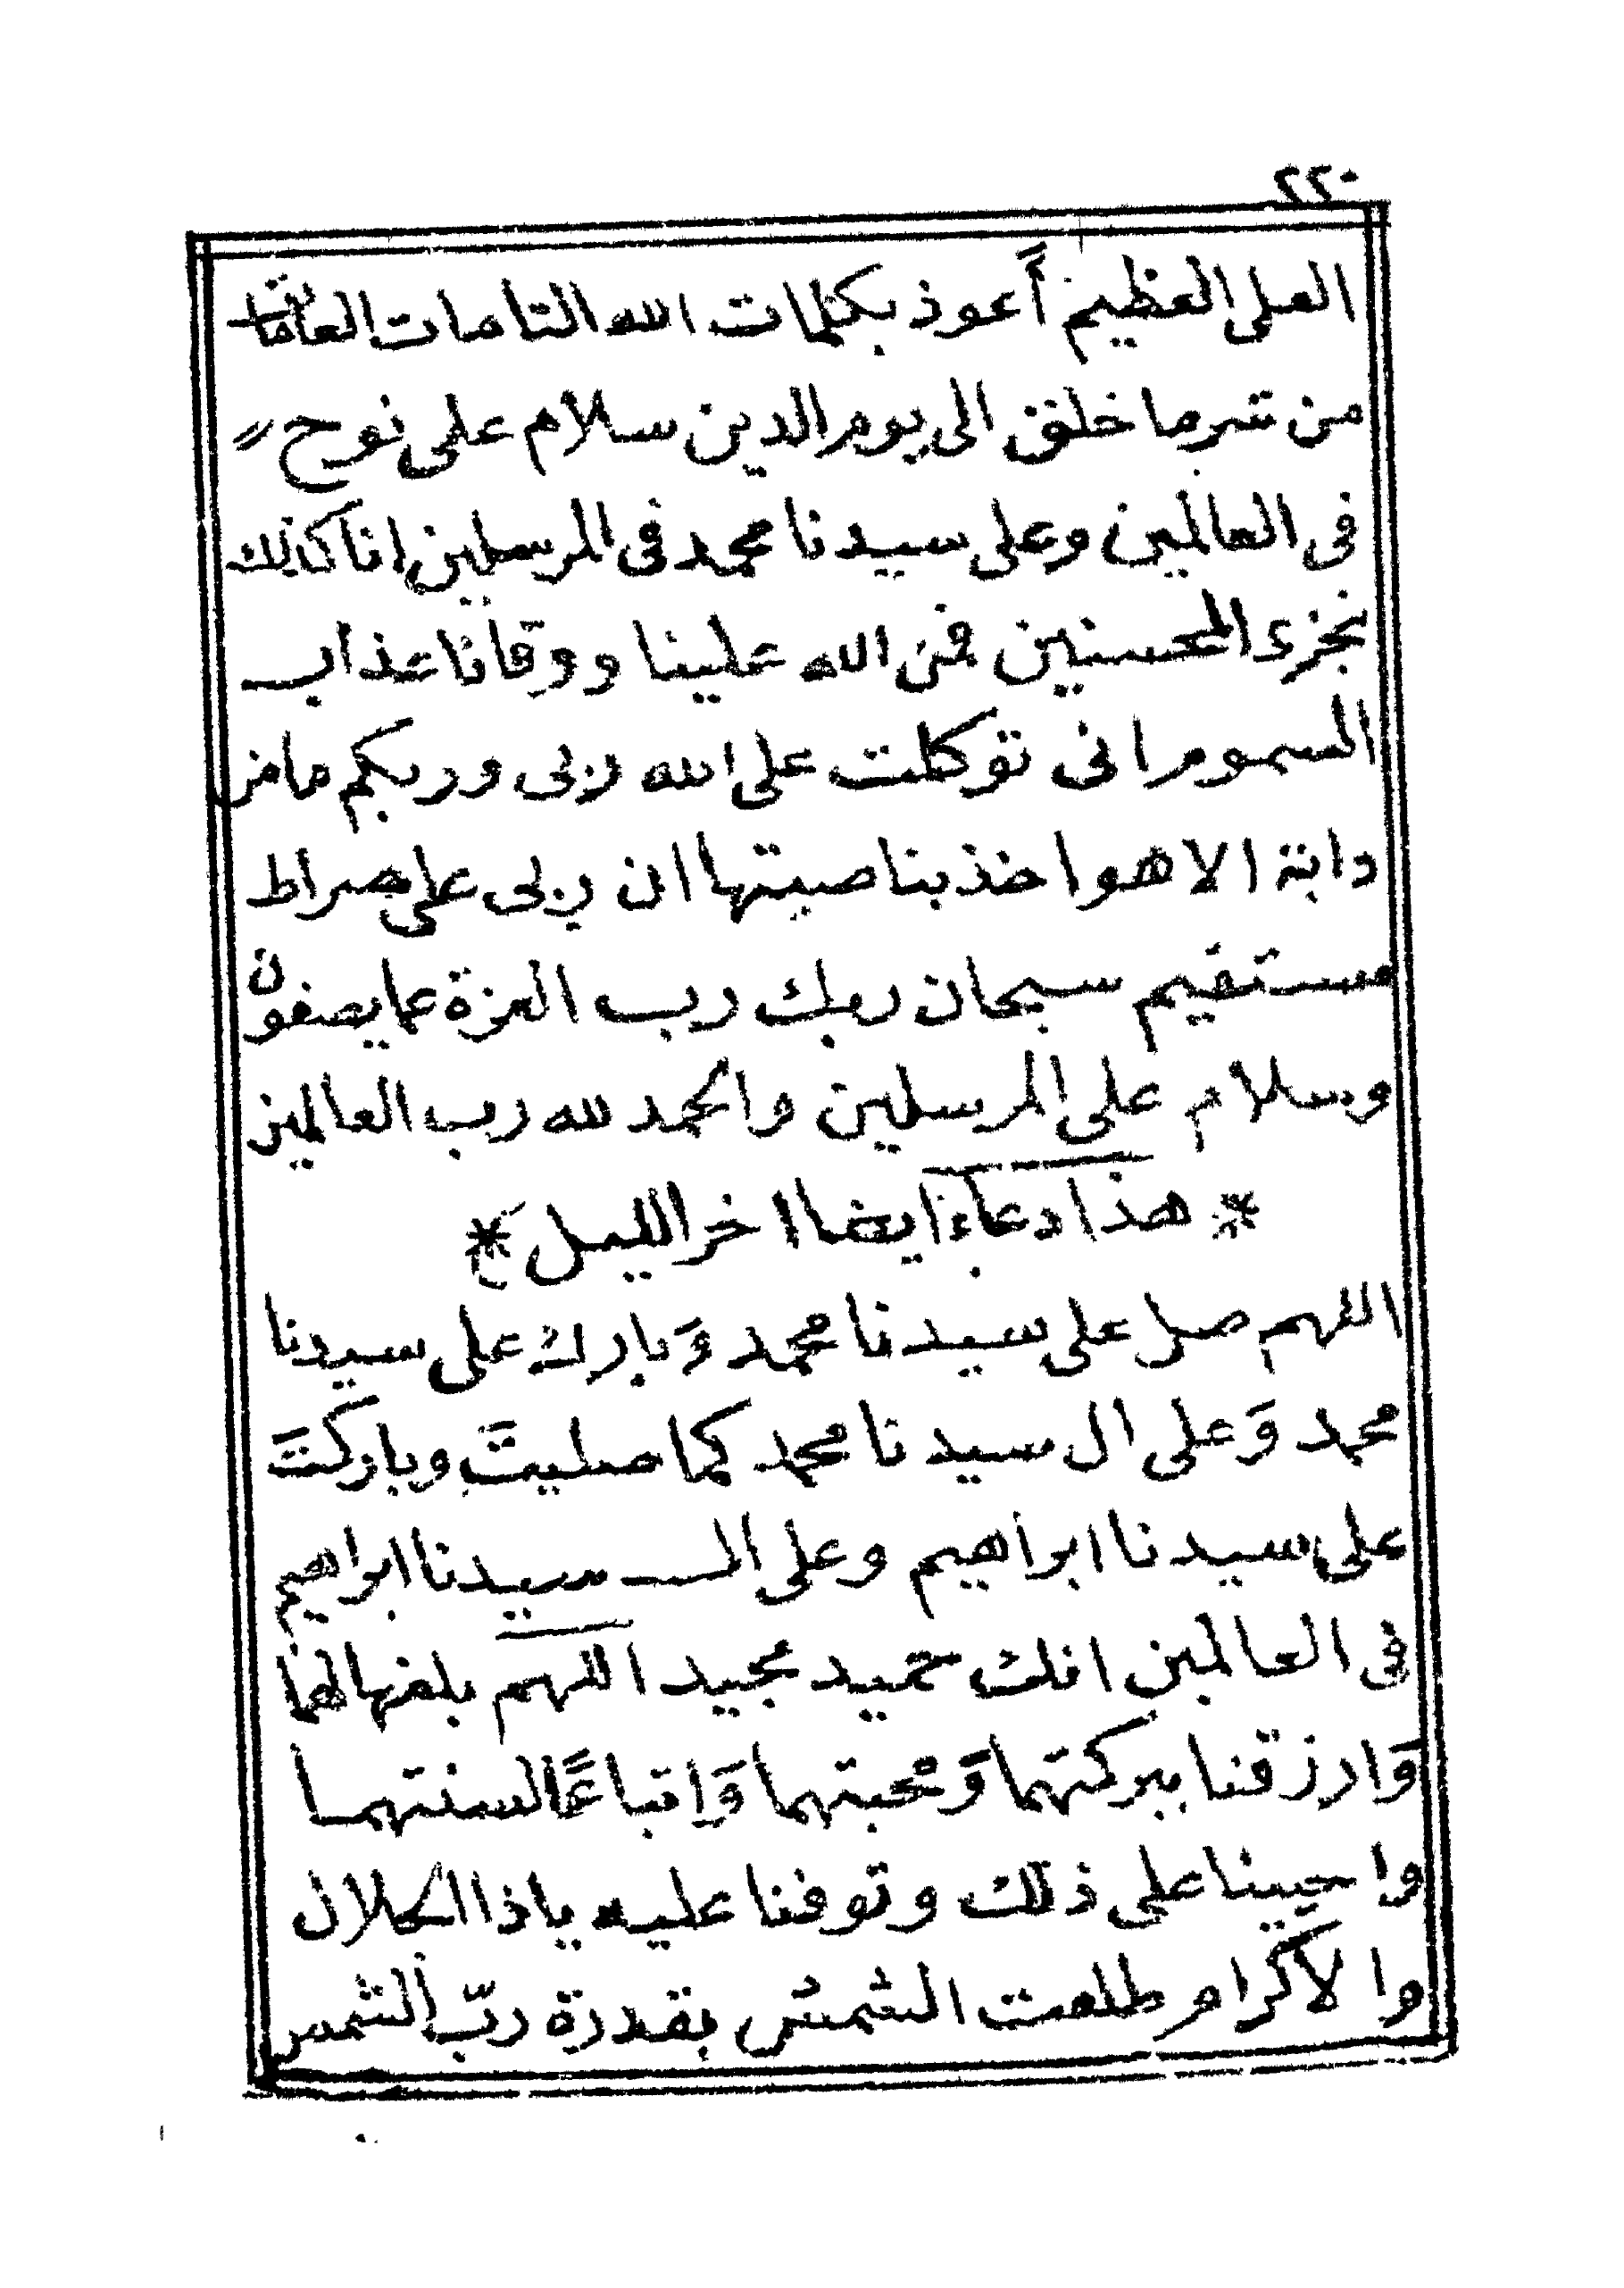 ٢٢٠
العلى العظيم أعوذ بكلمات الله التامات العامات
من شر ما خلق الى يوم الدين سلام على نوح
فى العالمين وعلى سيدنا محمد فى المرسلين انا كذلك
نجزء المحسنين فمن الله علينا ووقانا عذاب
السموم انى توكلت على الله ربى وربكم ما من
دابة الا هو اخذ بناصيتها ان ربى على صراط
مستقيم سبحان ربك رب العزة عما يصفون
وسلام على المرسلين والحمد لله رب العالمين
* هذا دعاء ايضا اخر الليل *
اللهم صل على سيدنا محمد وَبارك على سيدنا
محمد وَعلى ال سيدنا محمد كما صليتَ وباركتَ
على سيدنا ابراهيم وعلى ال سيدنا ابراهيم
فى العالمين انك حميد مجيد اللهم بلغها لهما
وَارزقنا ببركتهما وَمحبتهما وَاتباعًا لسنتهما
واحيينا على ذلك وتوفنا عليه ياذا الجلال
والاكرام طلعت الشمس بقدرة ربّ الشمس